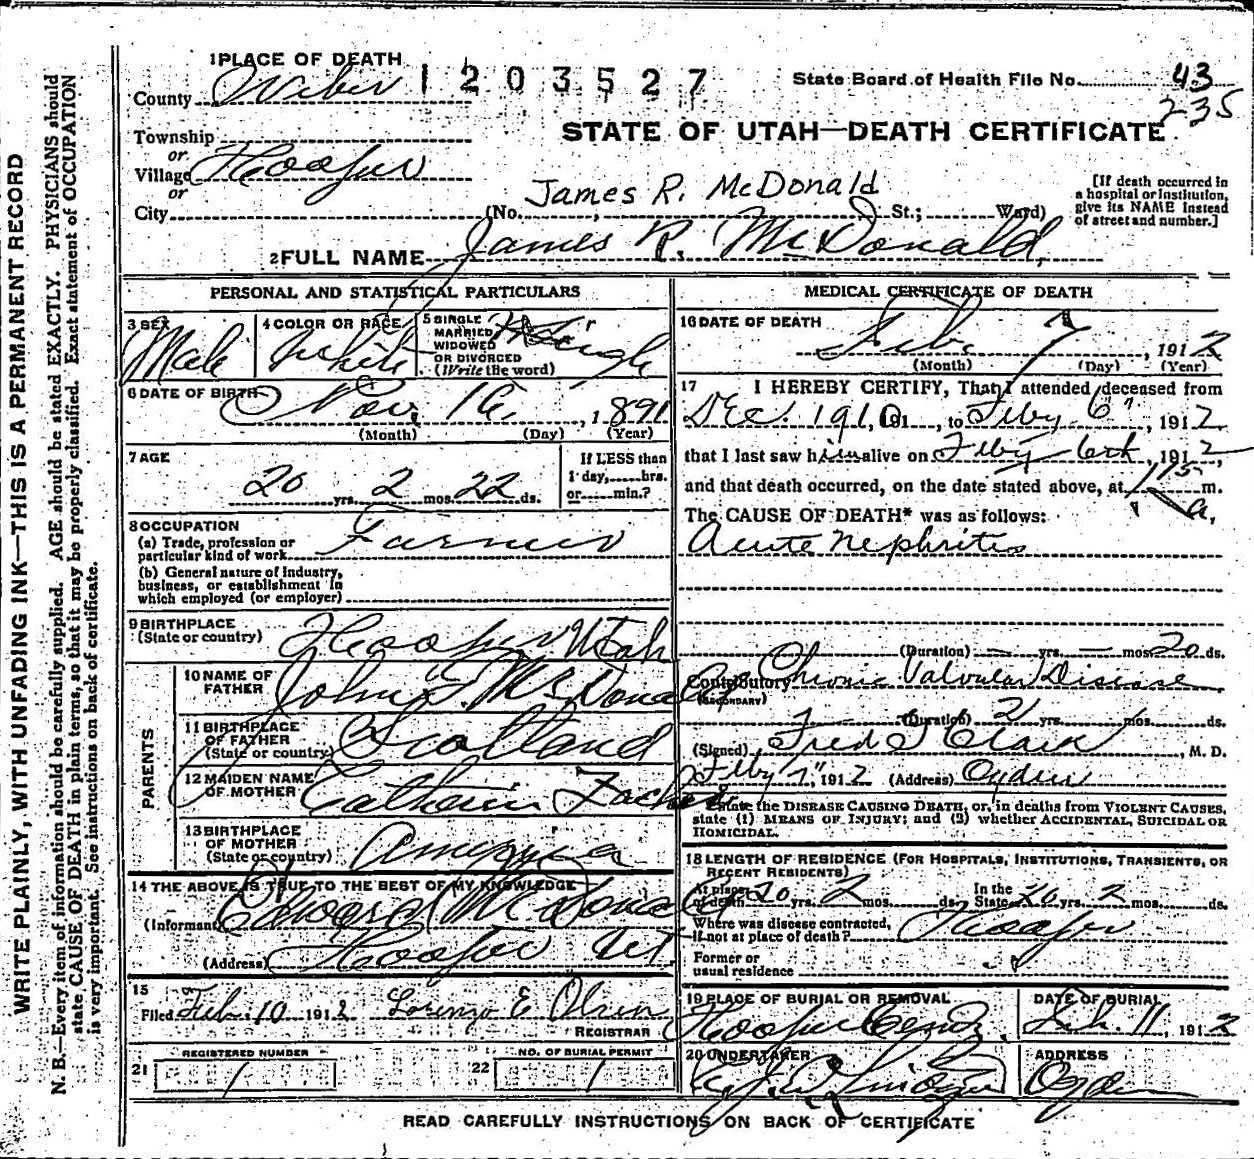 WRITE PLAINLY, WITH UNFADING INK—THIS IS A PERMANENT RECORD
N. B.—Every item of information should be carefully supplied. AGE should be stated EXACTLY. PHYSICIANS should
state CAUSE OF DEATH in plain terms, so that it may be properly classified. Exact statement of OCCUPATION
is very important. See instructions on back of certificate.
1 PLACE OF DEATH
County Weber
1203527
State Board of Health File No. 43
235
Township
or
Village Hooper
or
City
STATE OF UTAH—DEATH CERTIFICATE
James R. McDonald
(No. , St.; Ward)
[If death occurred in
a hospital or institution,
give its NAME instead
of street and number.]
2 FULL NAME James R. McDonald.
PERSONAL AND STATISTICAL PARTICULARS
3 SEX
Male
4 COLOR OR RACE
White
5 SINGLE
MARRIED
WIDOWED
OR DIVORCED
(Write the word)
Single
6 DATE OF BIRTH
Nov. 16, 1891
(Month) (Day) (Year)
7 AGE
20 yrs. 2 mos. 22 ds.
If LESS than
1 day, hrs.
or min.?
8 OCCUPATION
(a) Trade, profession or
particular kind of work Farmer
(b) General nature of industry,
business, or establishment in
which employed (or employer)
9 BIRTHPLACE
(State or country) Hooper Utah
PARENTS
10 NAME OF
FATHER John T. McDonald
11 BIRTHPLACE
OF FATHER
(State or country) Scotland
12 MAIDEN NAME
OF MOTHER Catherin
13 BIRTHPLACE
OF MOTHER
(State or country) America
14 THE ABOVE IS TRUE TO THE BEST OF MY KNOWLEDGE
(Informant) Edward McDonald
(Address) Hooper Ut
15
Filed Feb. 10 1912 Lorenzo E. Olsen
REGISTRAR
REGISTERED NUMBER
21 1
NO. OF BURIAL PERMIT
22 1
MEDICAL CERTIFICATE OF DEATH
16 DATE OF DEATH
Feb. 7, 1912
(Month) (Day) (Year)
17 I HEREBY CERTIFY, That I attended deceased from
Dec. 1910, 191 , to Feby 6", 1912,
that I last saw him alive on Feby 6th, 1912,
and that death occurred, on the date stated above, at 1 15 a. m.
The CAUSE OF DEATH* was as follows:
Acute Nephritis
(Duration) — yrs. — mos. 20 ds.
Contributory Chronic Valvular Disease
(SECONDARY)
(Duration) 2 yrs. mos. ds.
(Signed) Fred Clark, M. D.
Feby 7", 1912 (Address) Ogden
*State the DISEASE CAUSING DEATH, or, in deaths from VIOLENT CAUSES,
state (1) MEANS OF INJURY; and (2) whether ACCIDENTAL, SUICIDAL OR
HOMICIDAL.
18 LENGTH OF RESIDENCE (FOR HOSPITALS, INSTITUTIONS, TRANSIENTS, OR
RECENT RESIDENTS)
At place
of death 20 yrs. 2 mos. ds.
In the
State 20 yrs. 2 mos. ds.
Where was disease contracted,
if not at place of death? Hooper
Former or
usual residence
19 PLACE OF BURIAL OR REMOVAL
Hooper Cem.
DATE OF BURIAL
Feb. 11, 1912
20 UNDERTAKER
ADDRESS
Ogden
READ CAREFULLY INSTRUCTIONS ON BACK OF CERTIFICATE